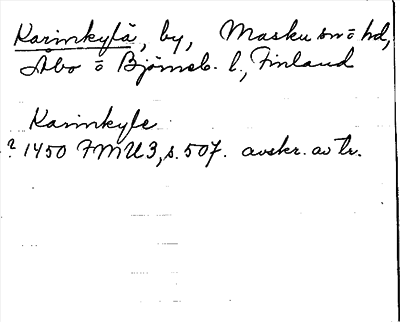 Karinkylä, by, Masku sn o hd,
Åbo o Björneb. l., Finland
Karinkyle
? 1450 FMU 3, s. 507. avskr. av tr.